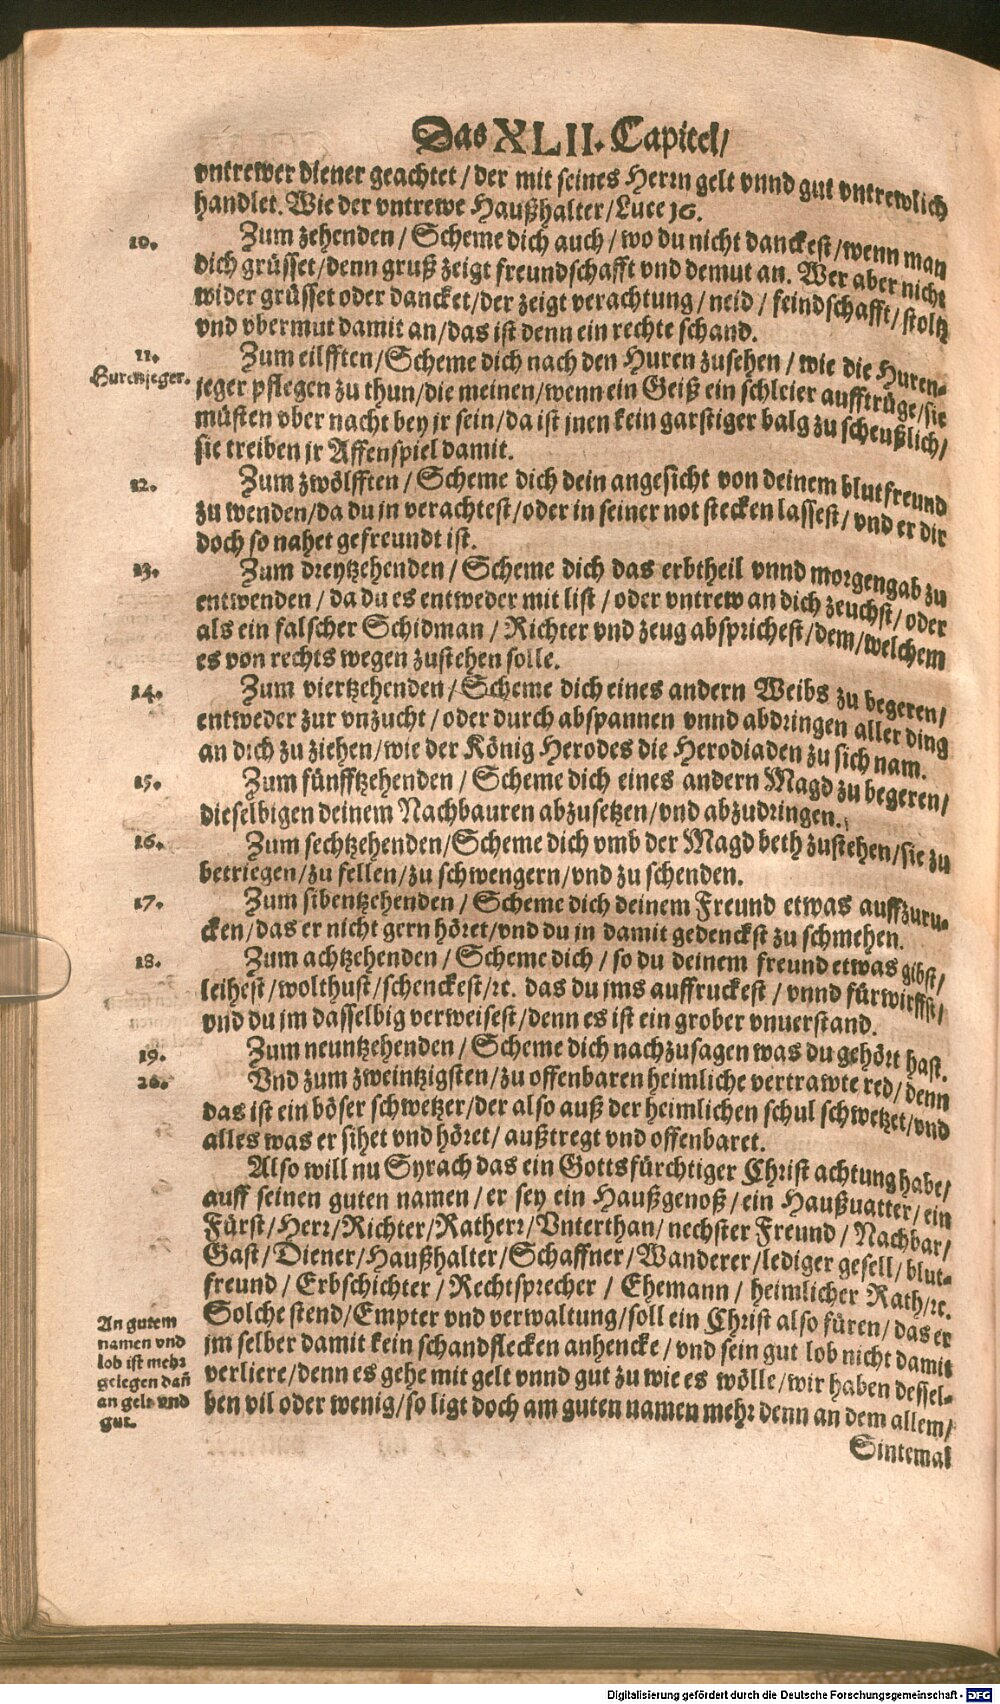 Das XLII. Capitel/
vntrewer diener geachtet / der mit seines Herrn gelt vnnd gut vntrewlich
handlet. Wie der vntrewe Haußhalter/Luce 16.
10. Zum zehenden / Scheme dich auch / wo du nicht danckest/wenn man
dich grüsset/denn gruß zeigt freundschafft vnd demut an. Wer aber nicht
wider grüsset oder dancket/der zeigt verachtung/ neid / feindschafft/ stoltz
vnd vbermut damit an/das ist denn ein rechte schand.
11. Zum eilfften/Scheme dich nach den Huren zusehen / wie die Huren-
Hurenjeger. jeger pflegen zu thun/die meinen/wenn ein Geiß ein schleier aufftrüge/sie
müsten vber nacht bey jr sein/da ist jnen kein garstiger balg zu scheußlich/
sie treiben jr Affenspiel damit.
12. Zum zwölfften / Scheme dich dein angesicht von deinem blutfreund
zu wenden/da du jn verachtest/oder in seiner not stecken lassest/ vnd er dir
doch so nahet gefreundt ist.
13. Zum dreytzehenden / Scheme dich das erbtheil vnnd morgengab zu
entwenden / da du es entweder mit list / oder vntrew an dich zeuchst/ oder
als ein falscher Schidman / Richter vnd zeug absprichest/dem/welchem
es von rechts wegen zustehen solle.
14. Zum viertzehenden / Scheme dich eines andern Weibs zu begeren/
entweder zur vnzucht / oder durch abspannen vnnd abdringen aller ding
an dich zu ziehen/wie der König Herodes die Herodiaden zu sich nam.
15. Zum fünfftzehenden / Scheme dich eines andern Magd zu begeren/
dieselbigen deinem Nachbauren abzusetzen/vnd abzudringen.
16. Zum sechtzehenden/Scheme dich vmb der Magd beth zustehen/sie zu
betriegen/zu fellen/zu schwengern/vnd zu schenden.
17. Zum sibentzehenden / Scheme dich deinem Freund etwas auffzuru-
cken/das er nicht gern höret/vnd du in damit gedenckst zu schmehen.
18. Zum achtzehenden / Scheme dich / so du deinem freund etwas gibst/
leihest/wolthust/schenckest/rc. das du jms auffruckest / vnnd fürwirffst/
vnd du jm dasselbig verweisest/denn es ist ein grober vnuerstand.
19. Zum neuntzehenden / Scheme dich nachzusagen was du gehört hast.
20. Vnd zum zweintzigsten/zu offenbaren heimliche vertrawte red/ denn
das ist ein böser schwetzer/der also auß der heimlichen schul schwetzet/vnd
alles was er sihet vnd höret/ außtregt vnd offenbaret.
Also will nu Syrach das ein Gottsfürchtiger Christ achtung habe/
auff seinen guten namen / er sey ein Haußgenoß / ein Haußuatter/ ein
Fürst/Herr/Richter/Ratherr/Vnterthan/ nechster Freund / Nachbar/
Gast/Diener/Haußhalter/Schaffner/Wanderer/lediger gesell/ blut-
freund / Erbschichter / Rechtsprecher / Ehemann / heimlicher Rath/rc.
Solche stend/Empter vnd verwaltung/soll ein Christ also füren/ das er
jm selber damit kein schandflecken anhencke / vnd sein gut lob nicht damit
verliere/denn es gehe mit gelt vnnd gut zu wie es wölle/wir haben dessel-
ben vil oder wenig/so ligt doch am guten namen mehr denn an dem allem/
An gutem
namen vnd
lob ist mehr
gelegen dañ
an gelt vnd
gut.
Sintemal
Digitalisierung gefördert durch die Deutsche Forschungsgemeinschaft - DFG